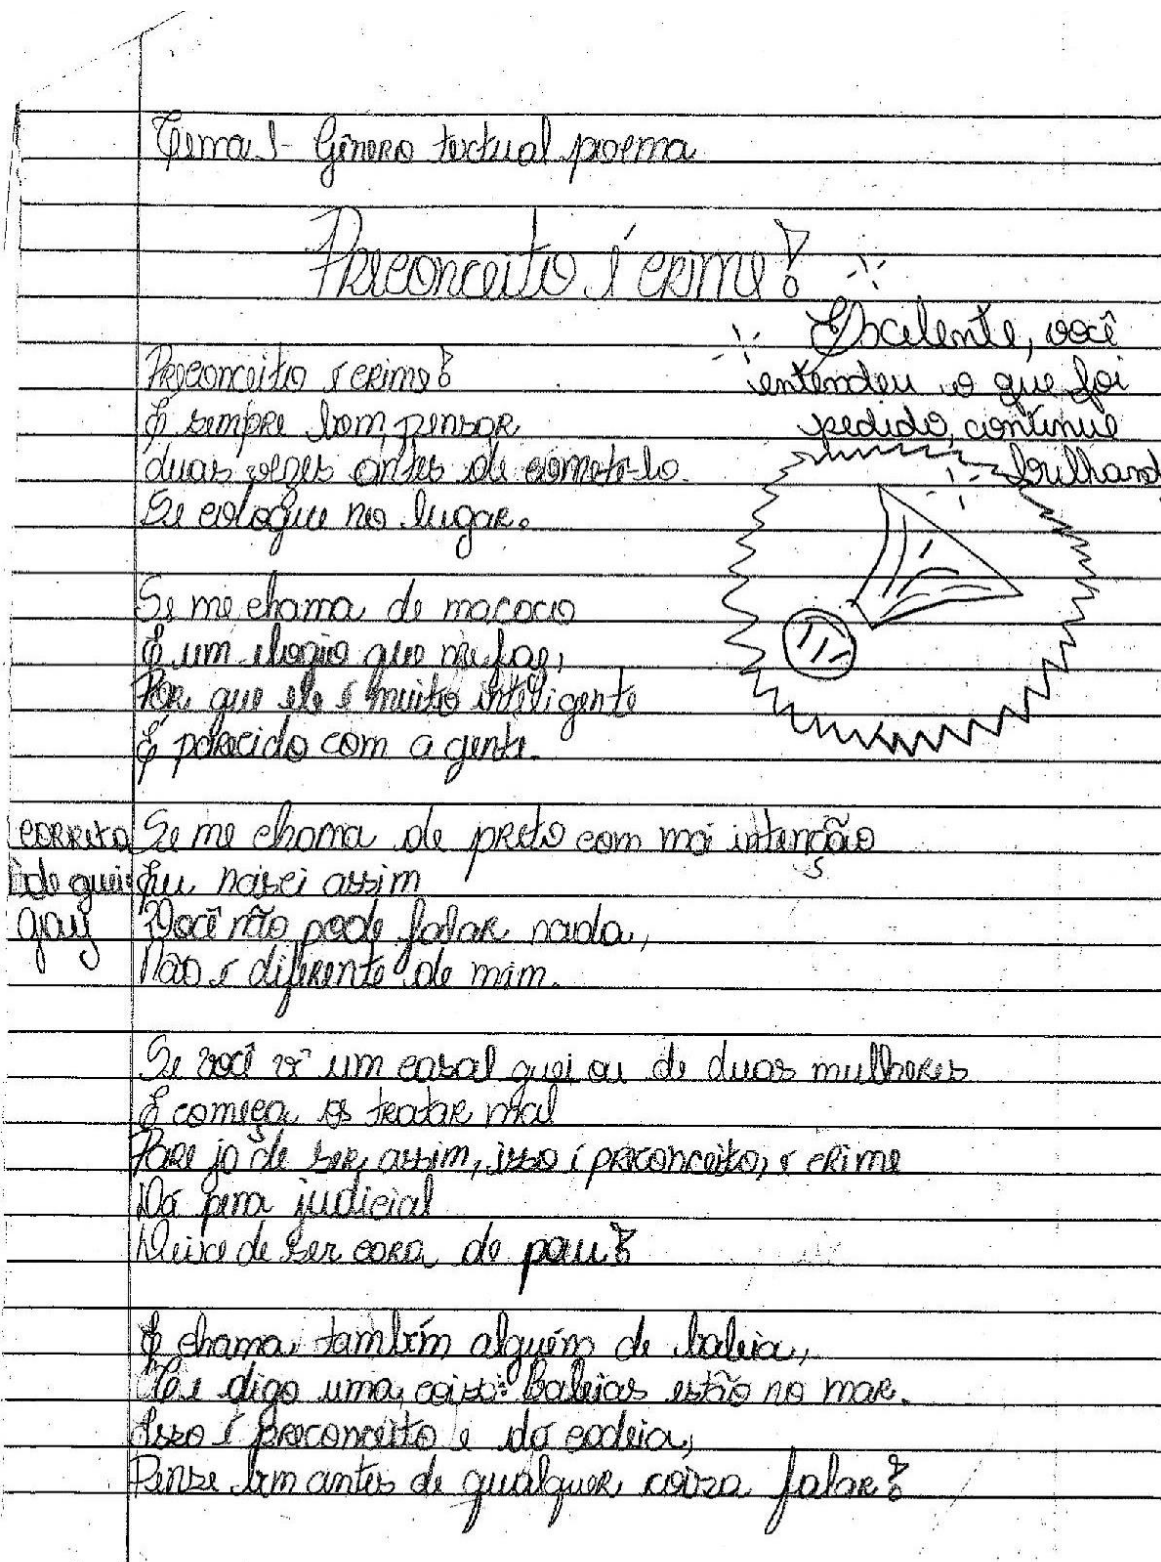 Tema 1- Gênero textual poema
Preconceito é crime!
Excelente, você
entendeu o que foi
pedido, continue
brilhand
Preconceito é crime!
É sempre bom pensar
duas vezes antes de cometê-lo.
Se coloque no lugar.
Se me chama de macaco
É um elogio que me faz,
Por que ele é muito inteligente
É parecido com a gente.
Se me chama de preto com má intenção
s
Eu nasci assim
Você não pode falar nada,
Não é diferente de mim.
correto
de guei:
gay
Se você vê um casal guei ou de duas mulheres
E começa os tratar mal
Pare já de ser assim, isso é preconceito, é crime
Dá pena judicial
Deixe de ser cara de pau!
E chama também alguém de baleia,
Te digo uma coisa: Baleias estão no mar.
Isso é preconceito e dá cadeia,
Pense bem antes de qualquer coiza falar!